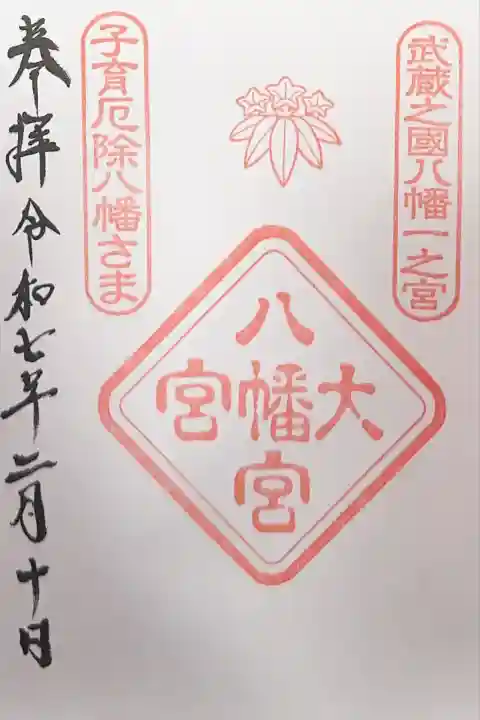 武蔵之國八幡一之宮
大宮八幡宮
子育厄除八幡さま
奉拝 令和七年二月十日